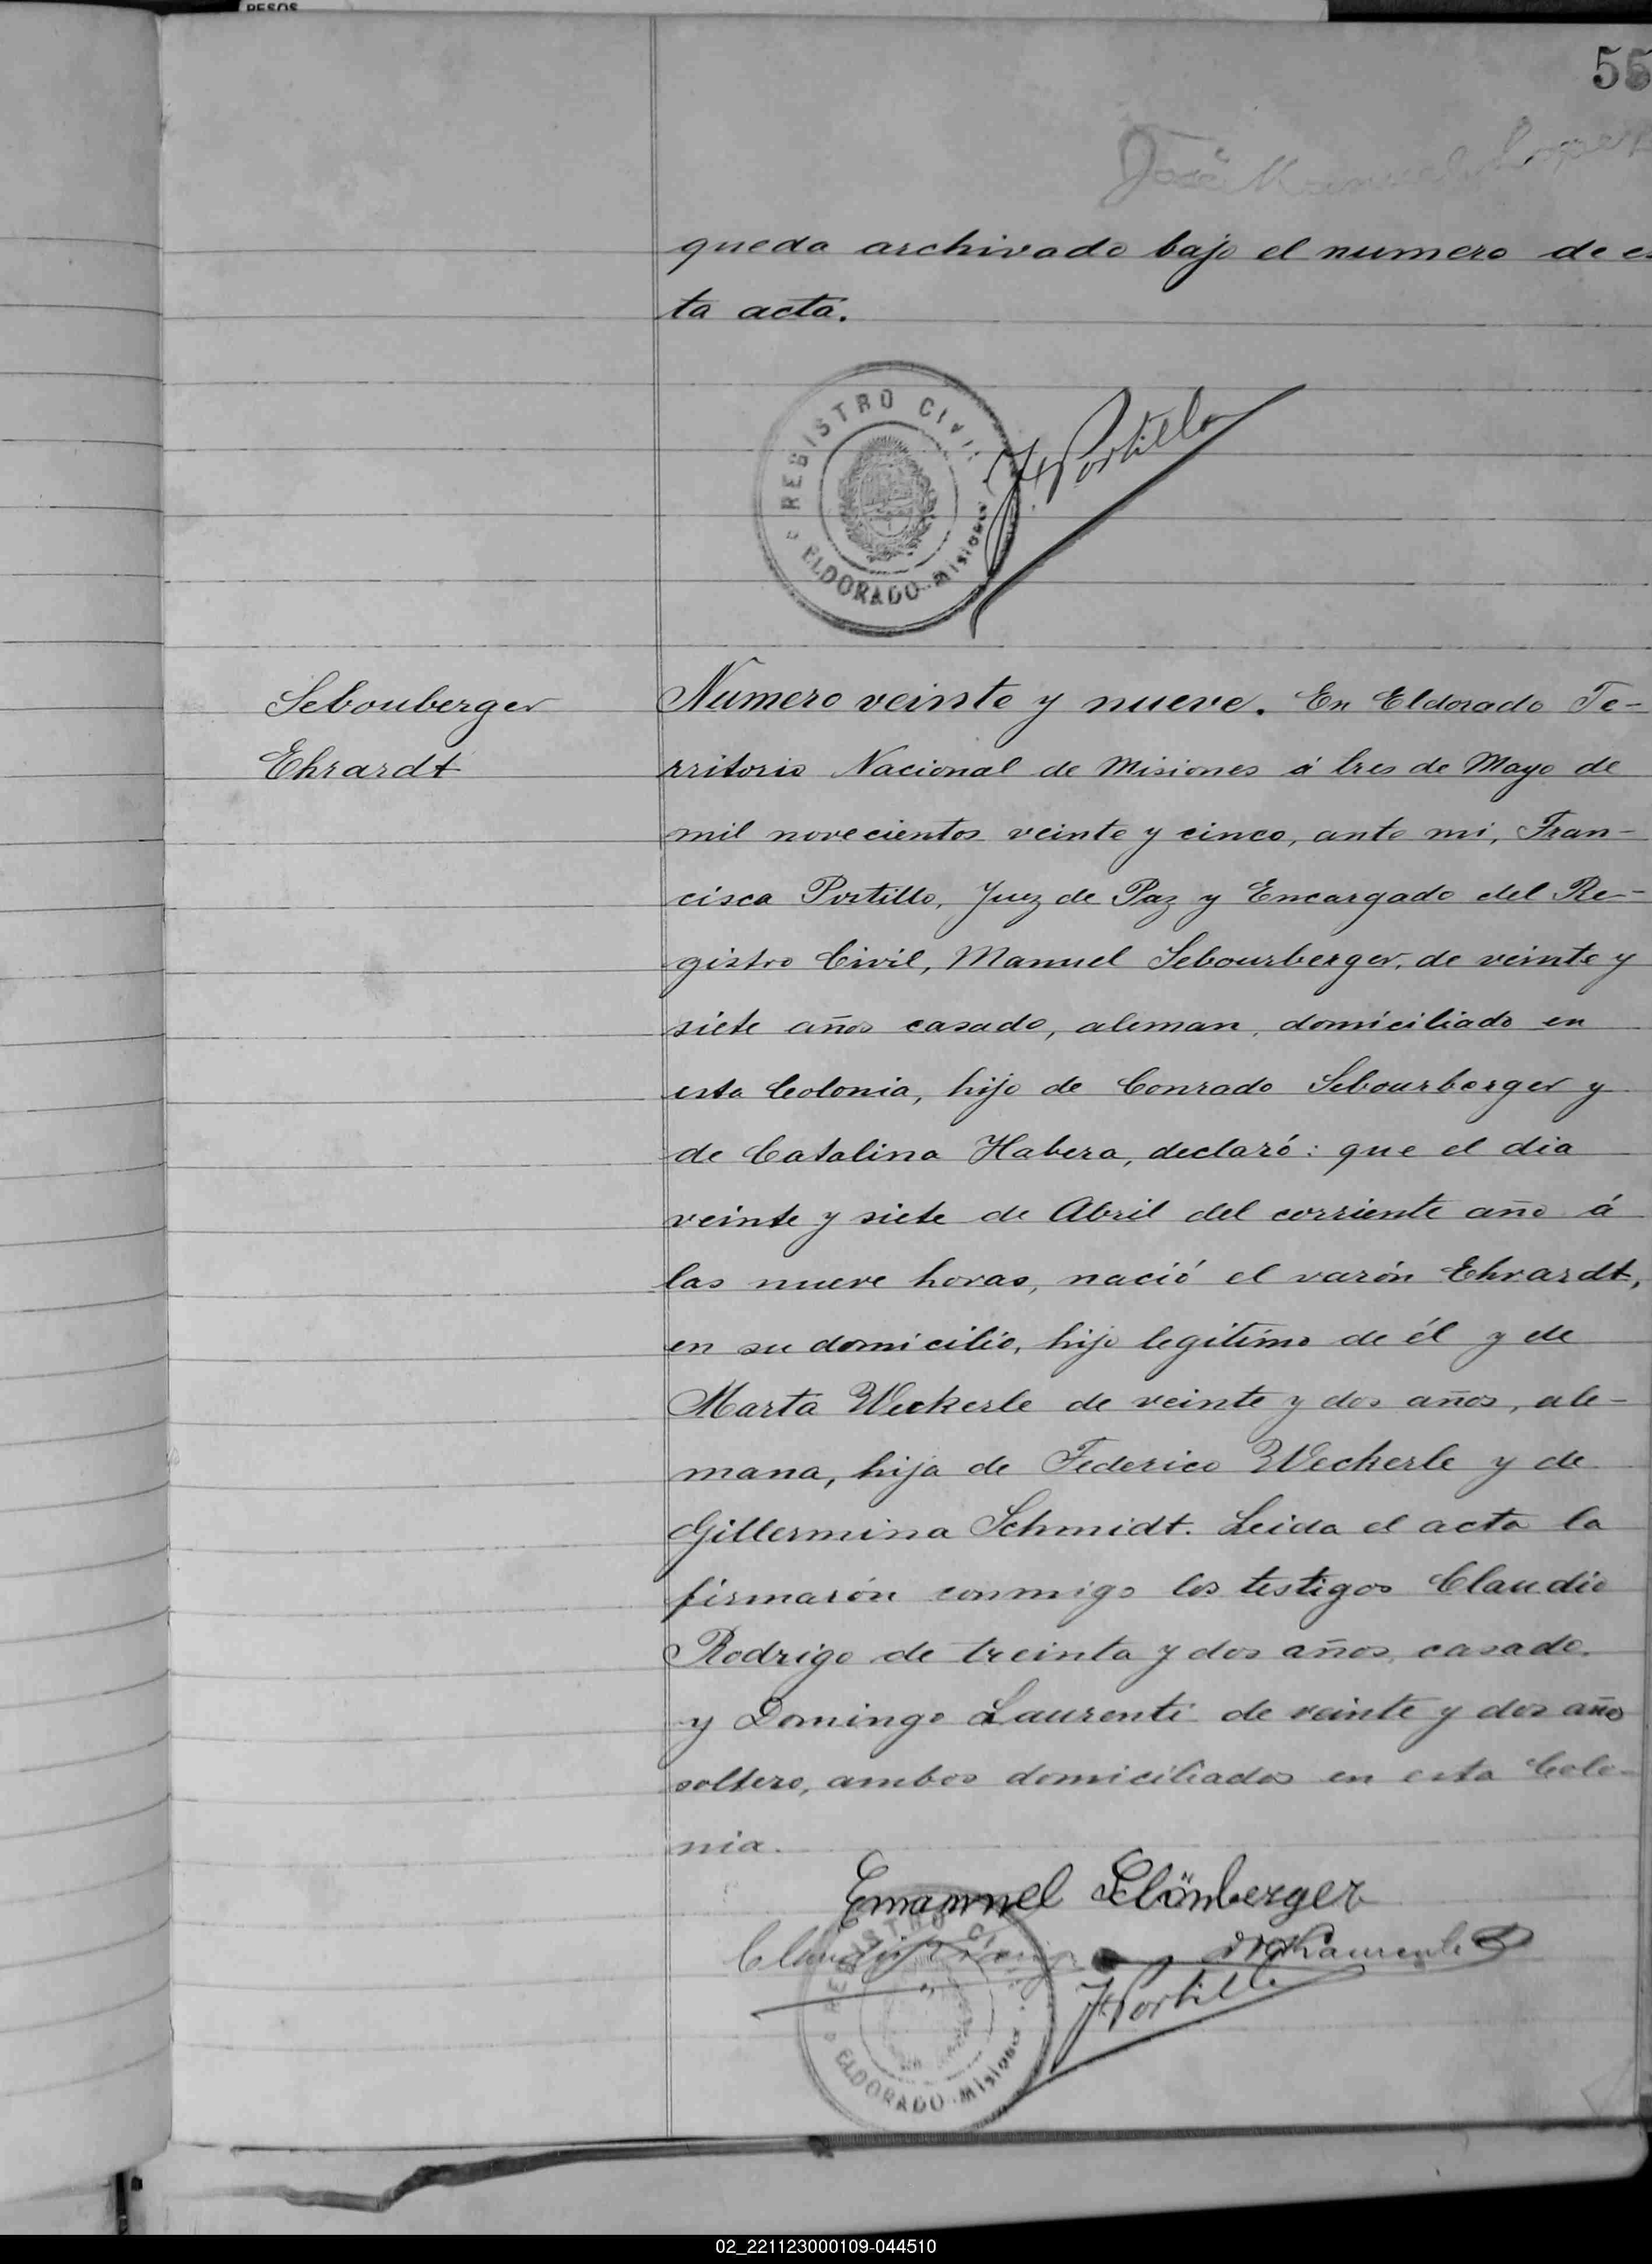 PESOS
55
José Manuel Lopez
queda archivado bajo el numero de es
ta acta.
REGISTRO CIVIL
ELDORADO - Misiones
F. Portillo
Sebouberger
Ehrardt
Numero veinte y nueve. En Eldorado Te-
rritorio Nacional de Misiones á tres de Mayo de
mil novecientos veinte y cinco, ante mi, Fran-
cisca Portillo, Juez de Paz y Encargado del Re-
gistro Civil, Manuel Sebourberger, de veinte y
siete años casado, aleman, domiciliado en
esta Colonia, hijo de Conrado Sebourberger y
de Catalina Habera, declaró: que el dia
veinte y siete de Abril del corriente año á
las nueve horas, nació el varón Ehrardt,
en su domicilio, hijo legitimo de él y de
Marta Weckerle de veinte y dos años, ale-
mana, hija de Federico Weckerle y de
Gillermina Schmidt. Leida el acta la
firmarón conmigo los testigos Claudio
Rodrigo de treinta y dos años, casado.
y Domingo Laurenti de veinte y dos años
soltero, ambos domiciliados en esta Colo-
nia.
Emanuel Schönberger
Claudio Rodrigo
Laurenti
F. Portillo
REGISTRO CIVIL
ELDORADO - Misiones
02_221123000109-044510